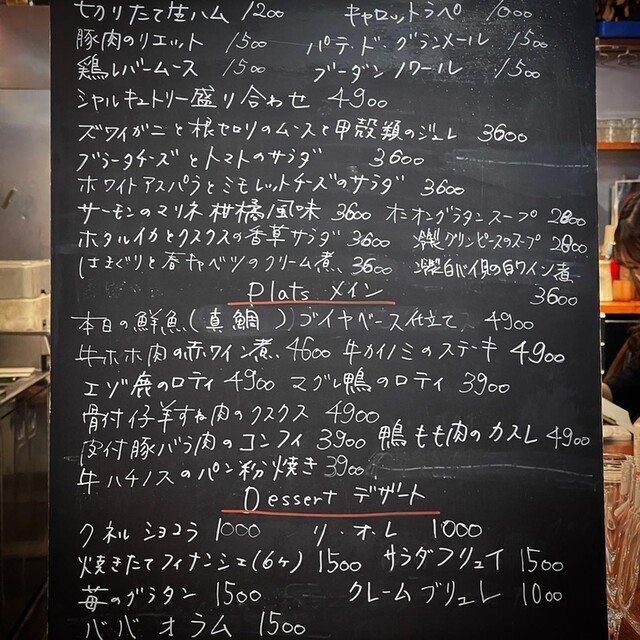 切りたて生ハム 1200 キャロットラペ 1000
豚肉のリエット 1500 パテ・ド・グランメール 1500
鶏レバームース 1500 ブーダンノワール 1500
シャルキュトリー盛り合わせ 4900
ズワイガニと根セロリのムースと甲殻類のジュレ 3600
ブラータチーズとトマトのサラダ 3600
ホワイトアスパラとミモレットチーズのサラダ 3600
サーモンのマリネ 柑橘風味 3600 オニオングラタンスープ 2800
ホタルイカとクスクスの香草サラダ 3600 冷製グリンピースのスープ 2800
はまぐりと春キャベツのクリーム煮 3600 冷製白バイ貝の白ワイン煮
3600
Plats メイン
本日の鮮魚(真鯛)ブイヤベース仕立て 4900
牛ホホ肉の赤ワイン煮 4600 牛カイノミのステーキ 4900
エゾ鹿のロティ 4900 マグレ鴨のロティ 3900
骨付仔羊すね肉のクスクス 4900
皮付豚バラ肉のコンフィ 3900 鴨もも肉のカスレ 4900
牛ハチノスのパン粉焼き 3900
Dessert デザート
クネル ショコラ 1000 リ・オ・レ 1000
焼きたてフィナンシェ(6ヶ) 1500 サラダフリュイ 1500
苺のグラタン 1500 クレームブリュレ 1000
ババ オ ラム 1500